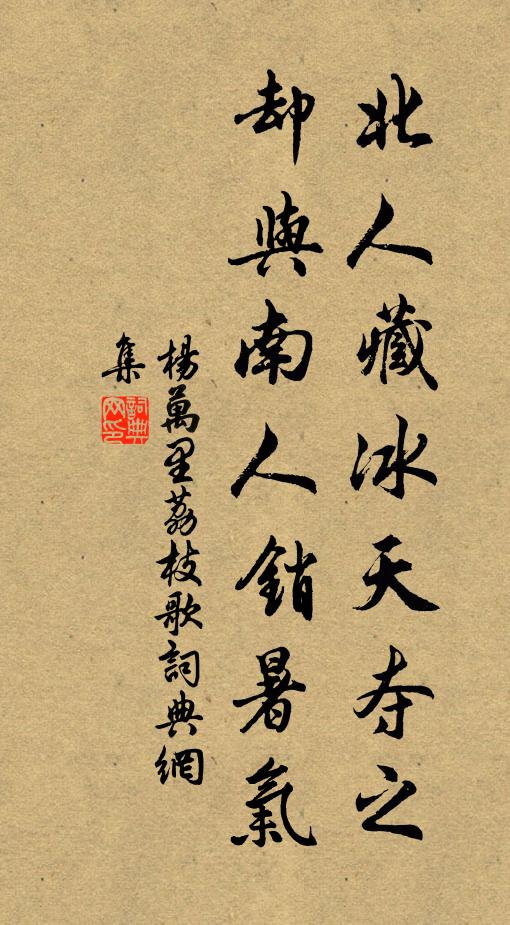 北人藏冰天夺之
却與南人銷暑氣
楊萬里荔枝歌詞典網
集
詞典
网印